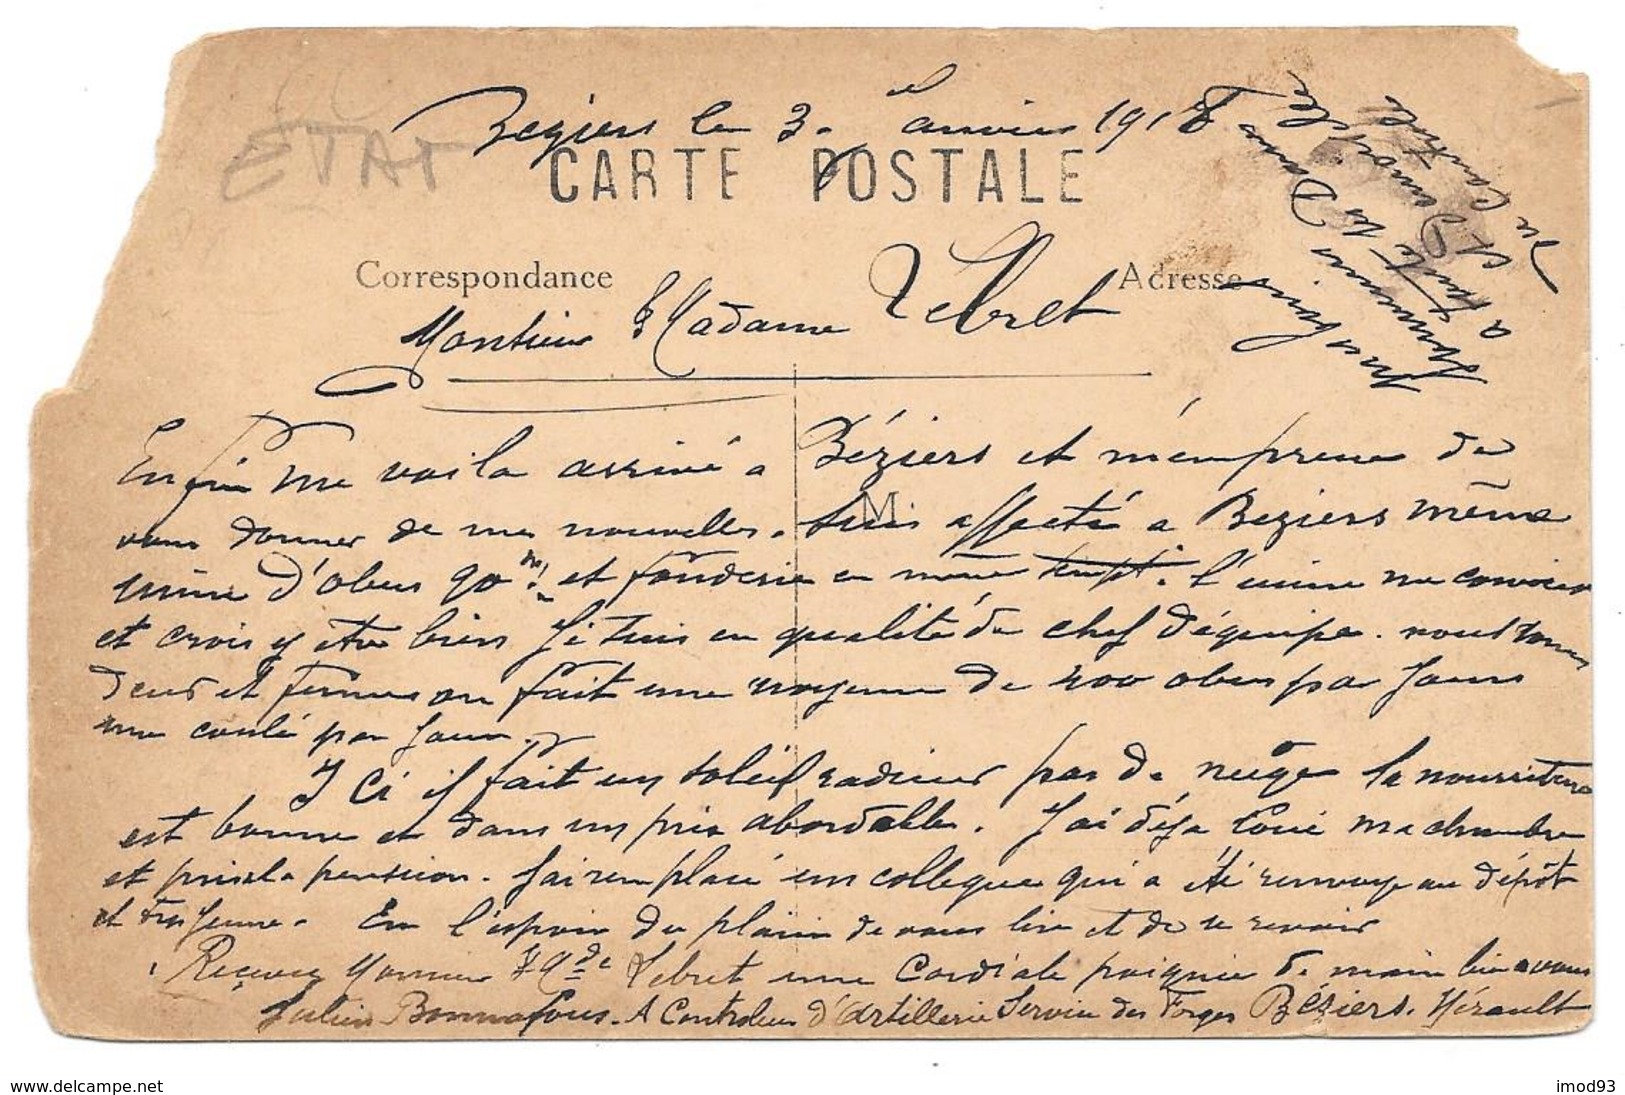 ETAT
Beziers le 3. Janvier 1918
CARTE POSTALE
Correspondance
Adresse
Monsieur & Madame Lebret
Enfin me voila arrivé a Béziers et m'empresse de
vous donner de mes nouvelles. Suis affecté a Beziers même
M
usine d'obus 90 m/m et fonderie en même tempt. l'usine me convient
et crois y être bien Je suis en qualité de chef d'équipe. nous
et fait une moyenne de 400 obus par Jours
coulé par Jour.
Ici il fait un soleil radieux pas de neige la nourriture
est bonne et dans un prix abordable. J'ai déja loué ma chambre
et pris la pension. J'ai remplacé un collegue qui a été renvoye au dépôt
et tres Jeune. En l'espoir du plaisir de vous lire et de se revoir
Recevez Monsieur & Mde Lebret une Cordiale poignée de main bien a vous
Julien Bonnafous. A Controleur d'Artillerie Service des Forges Béziers. Hérault
Mes bons
a toutes les Dames
et Demoiselles
du Contrôle